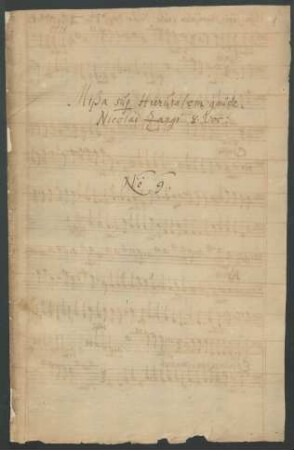 Missa sup Hierusalem gaude.
Nicolai Zangi 8 Voc:
No 9.